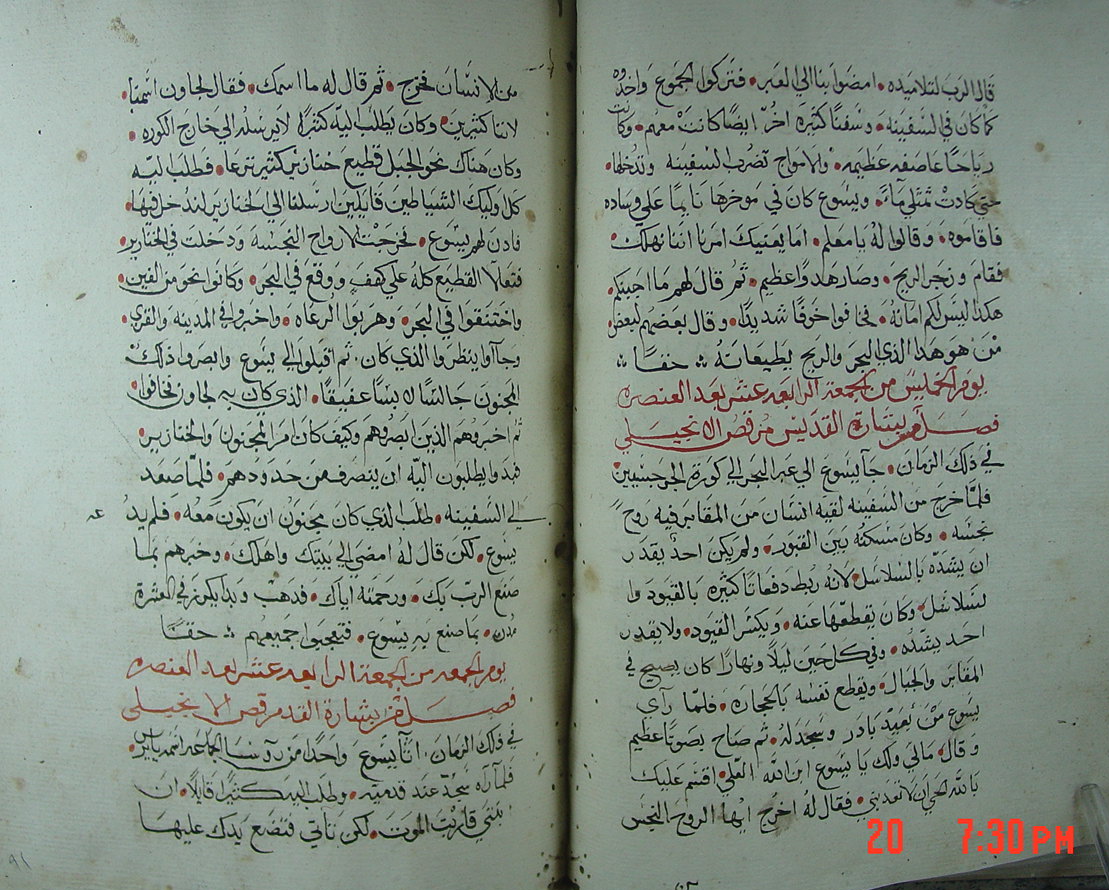 قال الرب لتلاميذه • امضوا بنا الي العبر • فتركوا الجموع واخذوه
كما كان في السفينه • وسفنًا كثيرة اخرٌ ايضًا كانت معهم • وكانت
رياحًا عاصفه عظيمه • والامواج تضرب السفينه وتدخلها •
حتي كادت تمتلي مآءً • ويسوع كان في موخرها نايمًا علي وساده
فاقاموه • وقالوا له يا معلم • اما يعنيك امرنا اننا نهلك •
فقام وزجر الريح • وصار هدوًا عظيم • ثم قال لهم ما اجبنكم •
هكذا ليس لكم امانه • فخافوا خوفًا شديدًا • وقال بعضهم لبعض •
من هو هذا الذي البحر والريح يطيعانه ∴ حقًا ∴
يوم الخميس من الجمعة الرابعه عشر بعد العنصره
فصل من بشارة القديس مرقص الانجيلي
في ذلك الزمان • جآ يسوع الي عبر البحر الي كورة الجرجسيين
فلما خرج من السفينه لقيه انسان من المقابر فيه روحٌ
نجسه • وكان مسكنه بين القبور • ولم يكن احدٌ يقدر
ان يشده بالسلاسل لانه ربط دفعاتًا كثيره بالقيود وا
لسلاسل • وكان يقطعها عنه • ويكسر القيود • ولا يقدر
احد يشده • وفي كل حين ليلاً ونهارًا كان يصيح في
المقابر والجبال • ويقطع نفسه بالحجاره • فلما رآي
يسوع من بعيد بادر وسجد له • ثم صاح بصوتًا عظيم
وقال • مالي ولك يا يسوع ابن الله العلي • اقسم عليك
بالله الحي ان لا تعذبني • فقال له اخرج ايها الروح النجس
من الانسان فخرج • ثم قال له ما اسمك • فقال لجاون اسمنا •
لاننا كثيرين • وكان يطلب اليه كثيرًا لا يرسله الي خارج الكوره •
وكان هناك نحو الجبل قطيع خنازير كثير ترعا • فطلب اليه
كل اوليك الشياطين قايلين ارسلنا الي الخنازير لندخل فيها •
فاذن لهم يسوع • فخرجت الارواح النجسه ودخلت في الخنازير
فتعالا القطيع كله علي كهفٍ ووقع في البحر • وكانوا نحو من الفين •
واختنقوا في البحر • وهربوا الرعاه • واخبروا في المدينه والقري •
وجآاوا ينظروا الذي كان • ثم اقبلوا الي يسوع وابصروا ذلك
المجنون جالسًا لابسًا عفيفًا • الذي كان به لجاون فخافوا •
ثم اخبروهم الذين ابصروهم وكيف كان امر المجنون والخنازير •
فبدوا يطلبون اليه ان ينصرف من حدودهم • فلما صعد
الي السفينه • طلب الذي كان مجنون ان يكون معه • فلم يدعه
يسوع • لكن قال له امضي الي بيتك واهلك • وخبرهم بما
صنع الرب بك • ورحمته اياك • فذهب وبدا يكرز في العشرة
مدن • بما صنع به يسوع • فتعجبوا جميعهم ∴ حقًا
يوم الجمعه من الجمعة الرابعه عشر بعد العنصره
فصل من بشارة القد مرقص الانجيلي
في ذلك الزمان • اتا يسوع واحدًا من روسا الجماعه اسمه يايرس •
فلما رآه سجد عند قدميه • وطلب اليه كثيرًا قايلاً • ان
بنتي قاربت الموت • لكن تاتي فتضع يدك عليها
٩١
20 7:30 PM